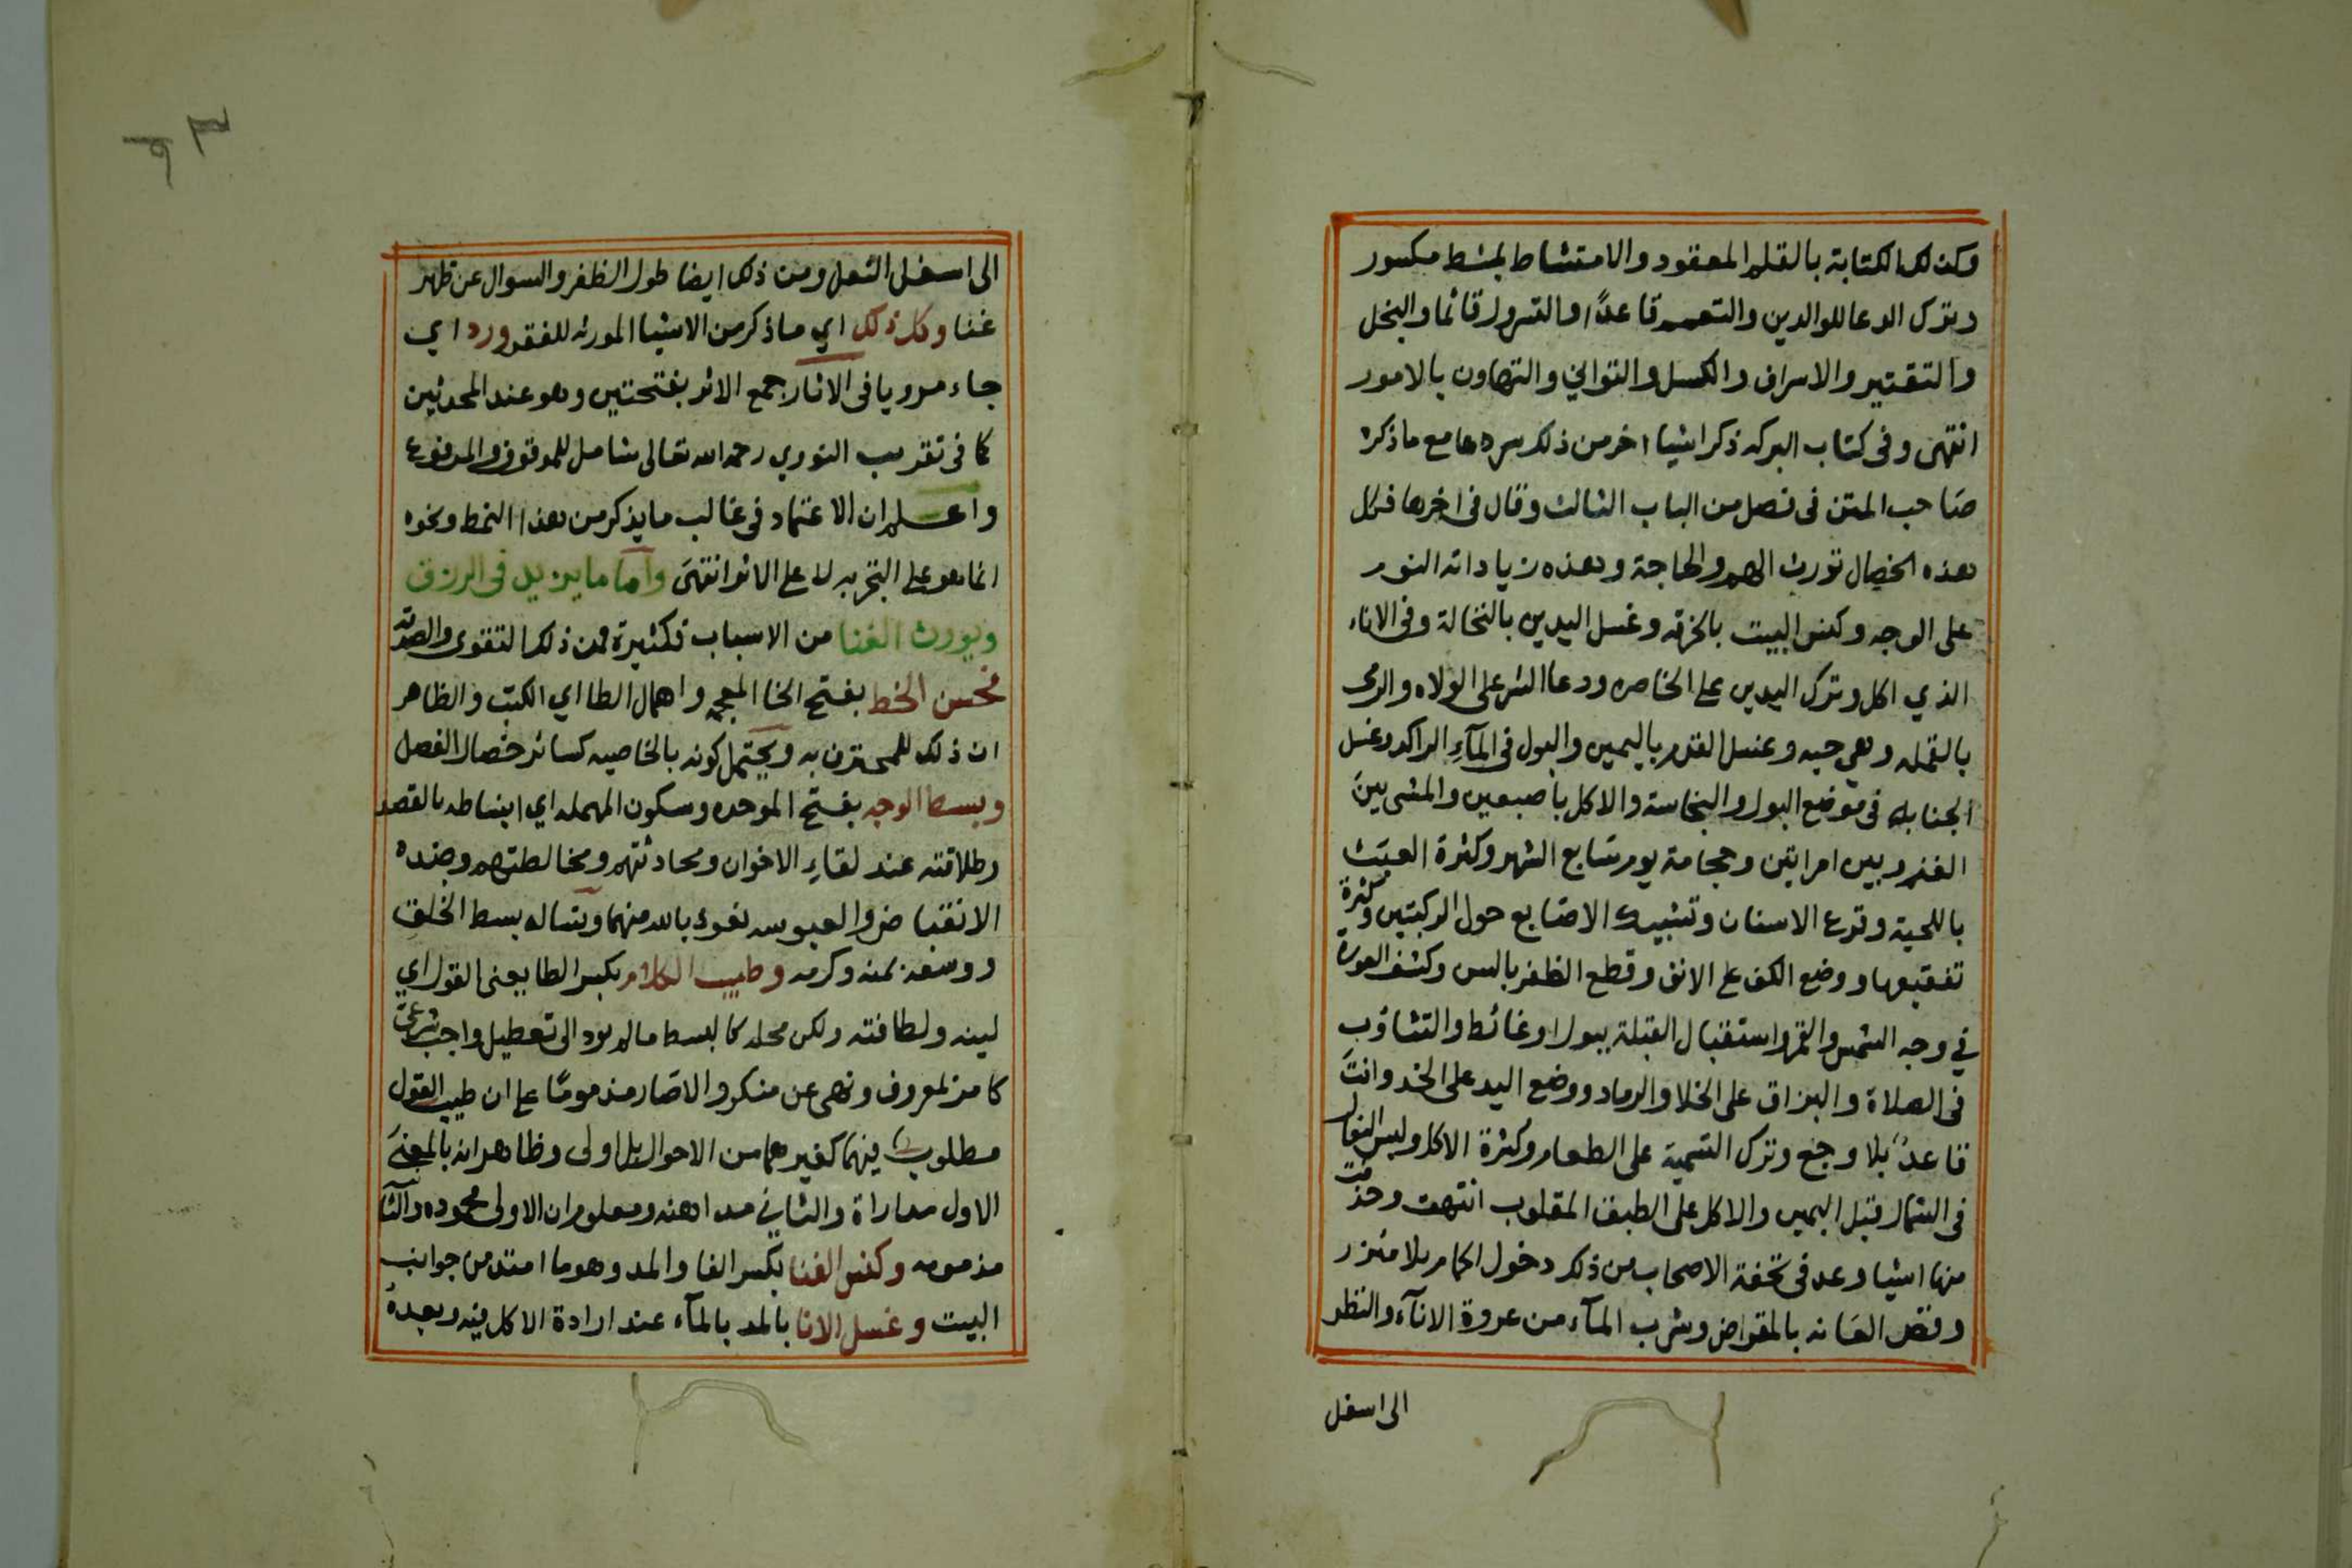 وكذلك الكتابة بالقلم المعقود والامتشاط بمشط مكسور
وترك الدعا للوالدين والتعمم قاعدًا والتسرول قائما والبخل
والتقتير والاسراف والكسل والتواني والتهاون بالامور
انتهى وفى كتاب البركه ذكر اشيا اخر من ذلك سردها مع ماذكره
صاحب المتن فى فصل من الباب الثالث وقال فى اخرها فكل
هذه الخصال تورث الهم والحاجة وهذه زياداته النوم
على الوجه وكنس البيت بالخرقه وغسل اليدين بالنخالة وفى الاناء
الذي اكل وترك اليدين على الخاصره ودعا الشر على الولاه والرمى
بالقمله وهي حيه وغسل القدم باليمين والبول فى المآءِ الراكد وغسل
الجنابه فى موضع البول والنجاسة والاكل باصبعين والمشى بين
الغنم وبين امراتين وحجامة يوم سابع الشهر وكثرة العبث
باللحية وقرع الاسنان وتشبيك الاصابع حول الركبتين وكثرة
تفقيعها ووضع الكف على الانف وقطع الظفر بالسن وكشف العورة
في وجه الشمس والقمر واستقبال القبلة ببول او غائط والتثاؤب
فى الصلاة والبزاق على الخلا والرماد ووضع اليد على الخد وانت
قاعدٌ بلا وجع وترك التسمية على الطعام وكثرة الاكل ولبس النعل
فى الشمال قبل اليمين والاكل على الطبق المقلوب انتهت وحذفت
منها اشيا وعد فى تحفة الاصحاب من ذلك دخول الحمام بلا مئزر
وقص العانه بالمقراض وشرب المآء من عروة الانآء والنظر
الى اسفل
الى اسفل النعل ومن ذلك ايضا طول الظفر والسوال عن ظهر
غنا وكل ذلك اي ماذكر من الاشيا المورثه للفقر ورد اي
جاء مرويا فى الاثار جمع الاثر بفتحتين وهو عند المحدثين
كما فى تقريب النووي رحمه الله تعالى شامل للموقوف والمرفوع
واعلم ان الاعتماد فى غالب مايذكر من هذا النمط ونحوه
انما هو على التجربه لا على الاثر انتهى واما مايزيد فى الرزق
ويورث الغنا من الاسباب فكثيرة فمن ذلك التقوى والصدقه
فحسن الخط بفتح الخا المعجمه واهمال الطا اي الكتب والظاهر
ان ذلك للمحترف به ويحتمل كونه بالخاصيه كسائر خصال الفصل
وبسط الوجه بفتح الموحده وسكون المهمله اي انبساطه بالقصد
وطلاقته عند لقاءِ الاخوان ومحادثتهم ومخالطتهم وضده
الانقباض والعبوسه نعوذ بالله منهما ونساله بسط الخلق
ووسعه بمنه وكرمه وطيب الكلام بكسر الطا يعنى القول اي
لينه ولطافته ولكن محله كالبسط مالم يود الى تعطيل واجب شرعى
كامر بمعروف ونهى عن منكر والاصار مذمومًا على ان طيب القول
مطلوب فيهما كغيرهما من الاحوال بل اولى وظاهر انه بالمعنى
الاول مداراة والثاني مداهنه ومعلوم ان الاولى محموده والثانيه
مذمومه وكنس الفنا بكسر الفا والمد وهو ما امتد من جوانب
البيت وغسل الانا بالمد بالمآء عند ارادة الاكل فيه وبعده